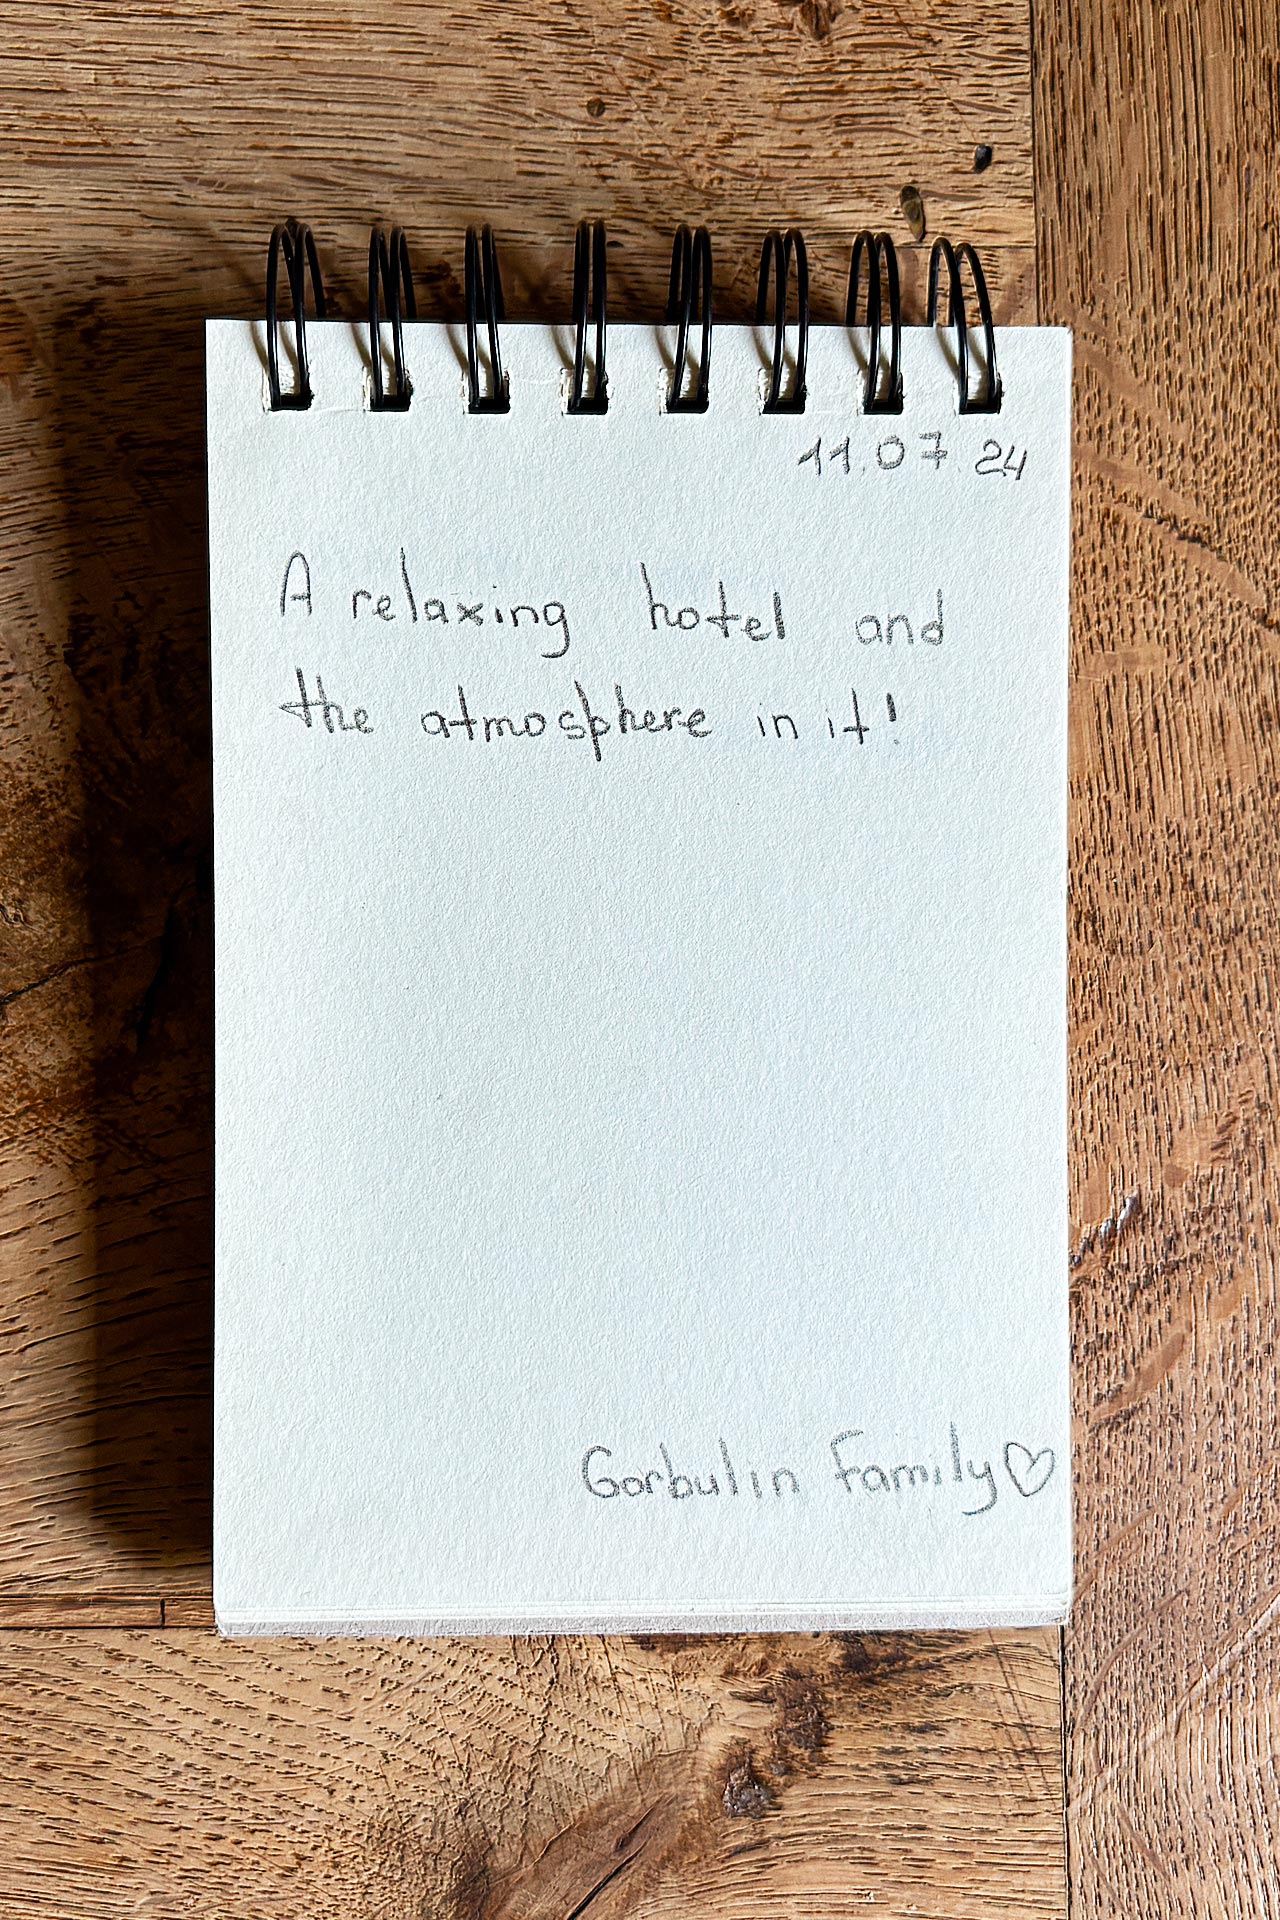 11.07.24
A relaxing hotel and
the atmosphere in it!
Gorbulin Family♡